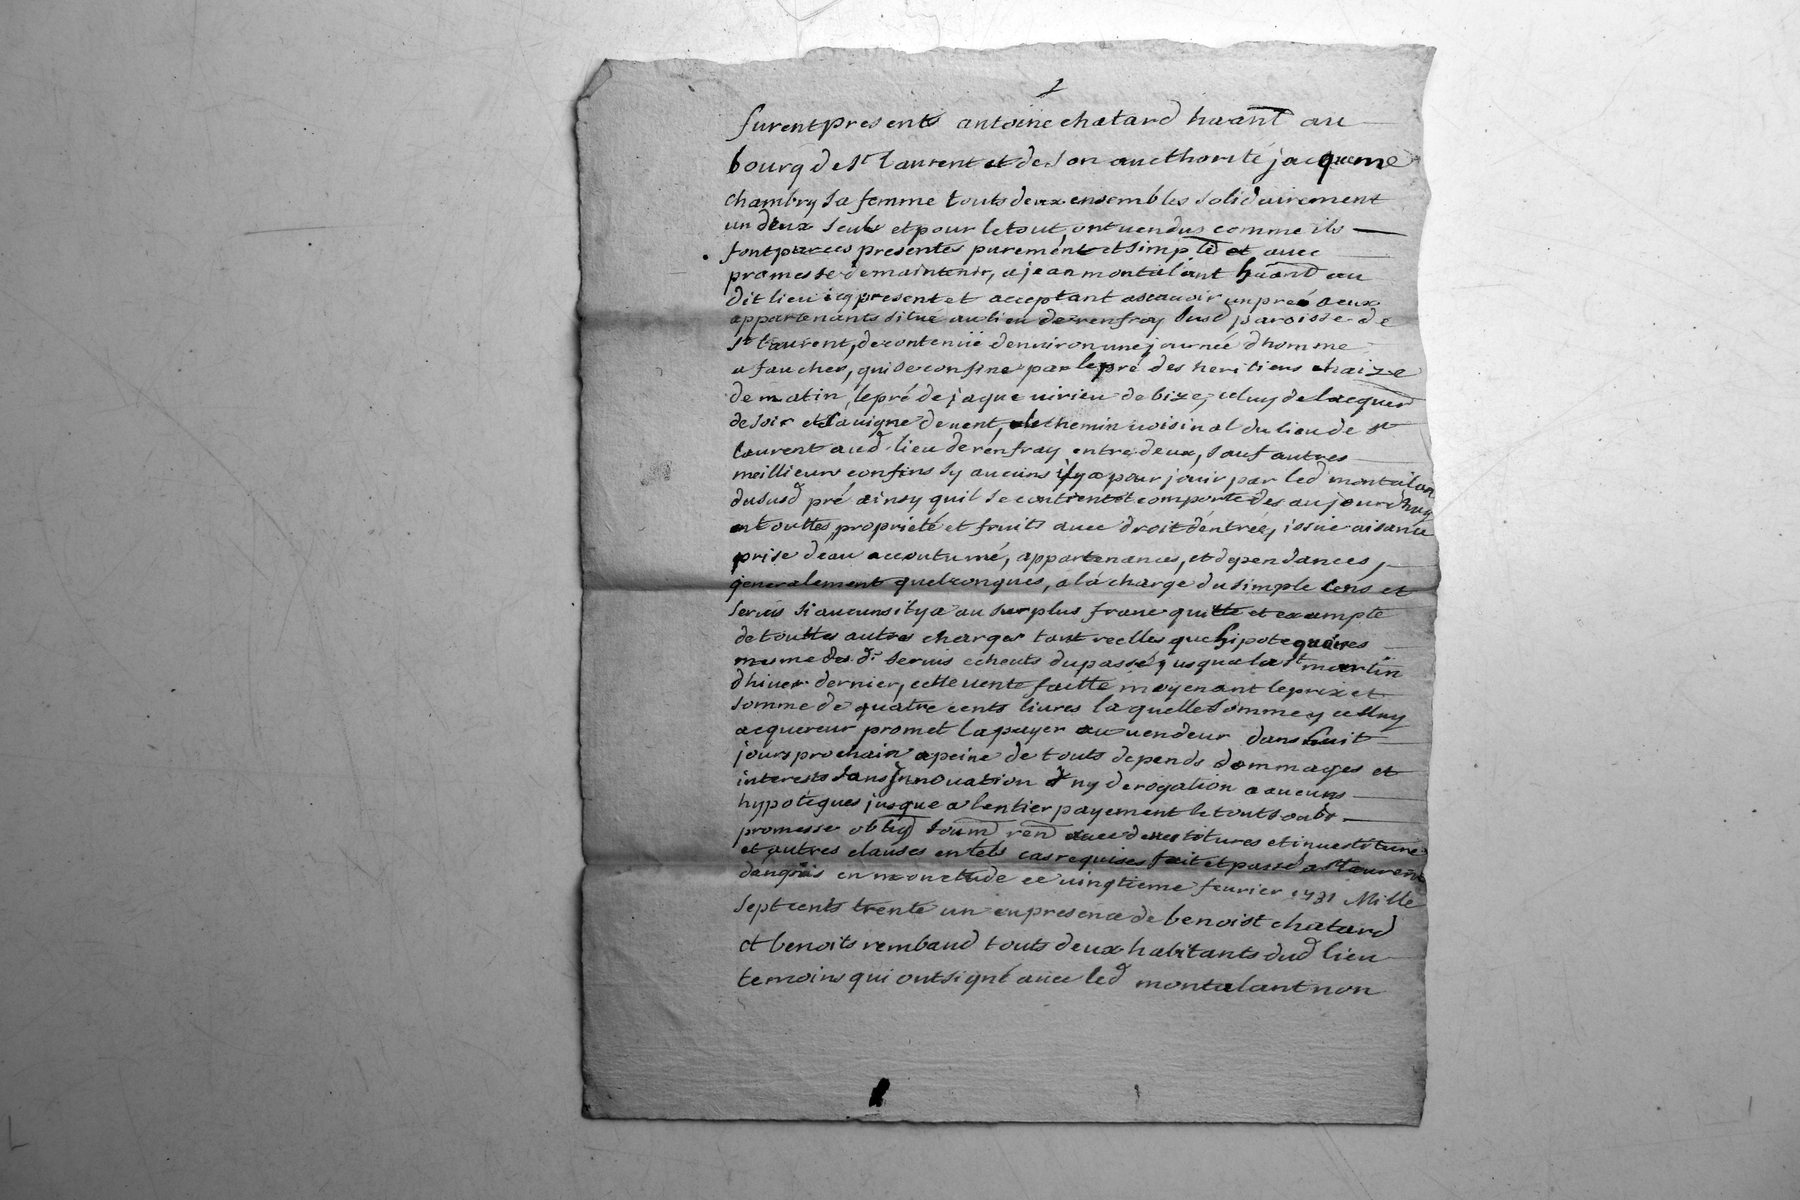 furent presents antoine chatard haant au
bourg de st laurent et de son aucthorité jacqueme
chambry sa femme touts deux ensembles solidairement
un deux seuls et pour le tout, ont uendus comme ils
font par ces presentes purement et simple et auec
promesse de maintenir, a jean montalant haant au
dit lieu icy present et acceptant ascauoir un pré a eux
appartenants situé au lieu de renfray susd paroisse de
st laurent, de contenüe denuiron une journée dhomme
a faucher, qui se confine par le pré des heritiers chaize
de matin, le pré de jaque uirieu de bize, celuy de lacquer
de soir et la uigne de uent, le chemin uoisinal du lieu de st
laurent aud lieu de renfray entre deux, sauf autres
meillieurs confins sy aucuns il y a pour jouir par led montalan
du susd pré ainsy quil se contient et comporte des aujourdhuy
en touttes proprieté et fruits auec droit dentree, issüe aisance
prise deau accoutumé, appartenances, et dependances,
generalement quelconques, a la charge du simple cens et
seruis si aucuns il y a au surplus franc quitte et exampte
de touttes autres charges tant reelles que hipotequaires
mesme des dt seruis echeuts du passé jusqua la st martin
dhiuer dernier, cette uente faitte moyenant le prix et
somme de quatre cents liures laquelle somme y celluy
acquereur promet la payer au uendeur dans huit
jours prochain a peine de touts depends dommages et
interests sans innouation ny derogation a aucuns
hypoteques jusque a lentier payement le tout soubs
promesse oblig soum ren auec deuestitures et inuestiture
et autres clauses en tels cas requises fait et passé a st laurent
en mon etude ce uingtieme feurier 1731 Mille
sept cents trente un en presence de benoist chatard
et benoits rembaud touts deux habitants dud lieu
temoins qui ont signé auec led montalant non